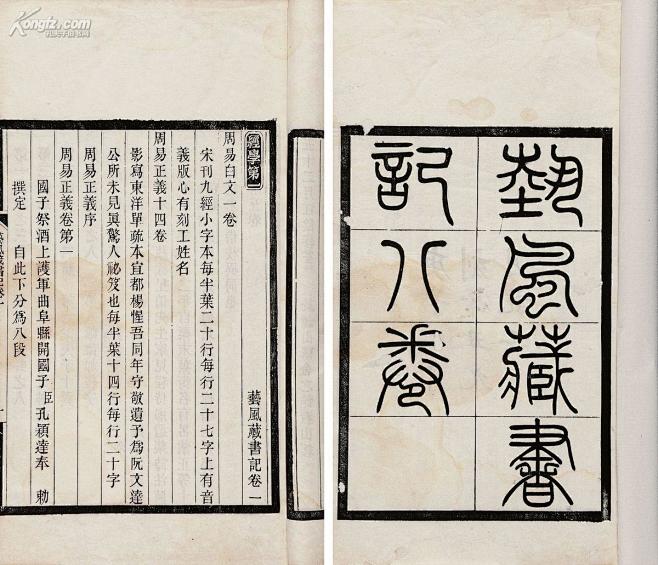 埶風藏書
記八卷
經學第一 藝風藏書記卷一
周易白文一卷
宋刊九經小字本每半葉二十行每行二十七字上有音
義版心有刻工姓名
周易正義十四卷
影寫東洋單疏本宜都楊惺吾同年守敬遺予爲阮文達
公所未見眞驚人祕笈也每半葉十四行每行二十字
周易正義序
周易正義卷第一
國子祭酒上護軍曲阜縣開國子臣孔穎達奉 勅
撰定 自此下分爲八段
Kongfz.com